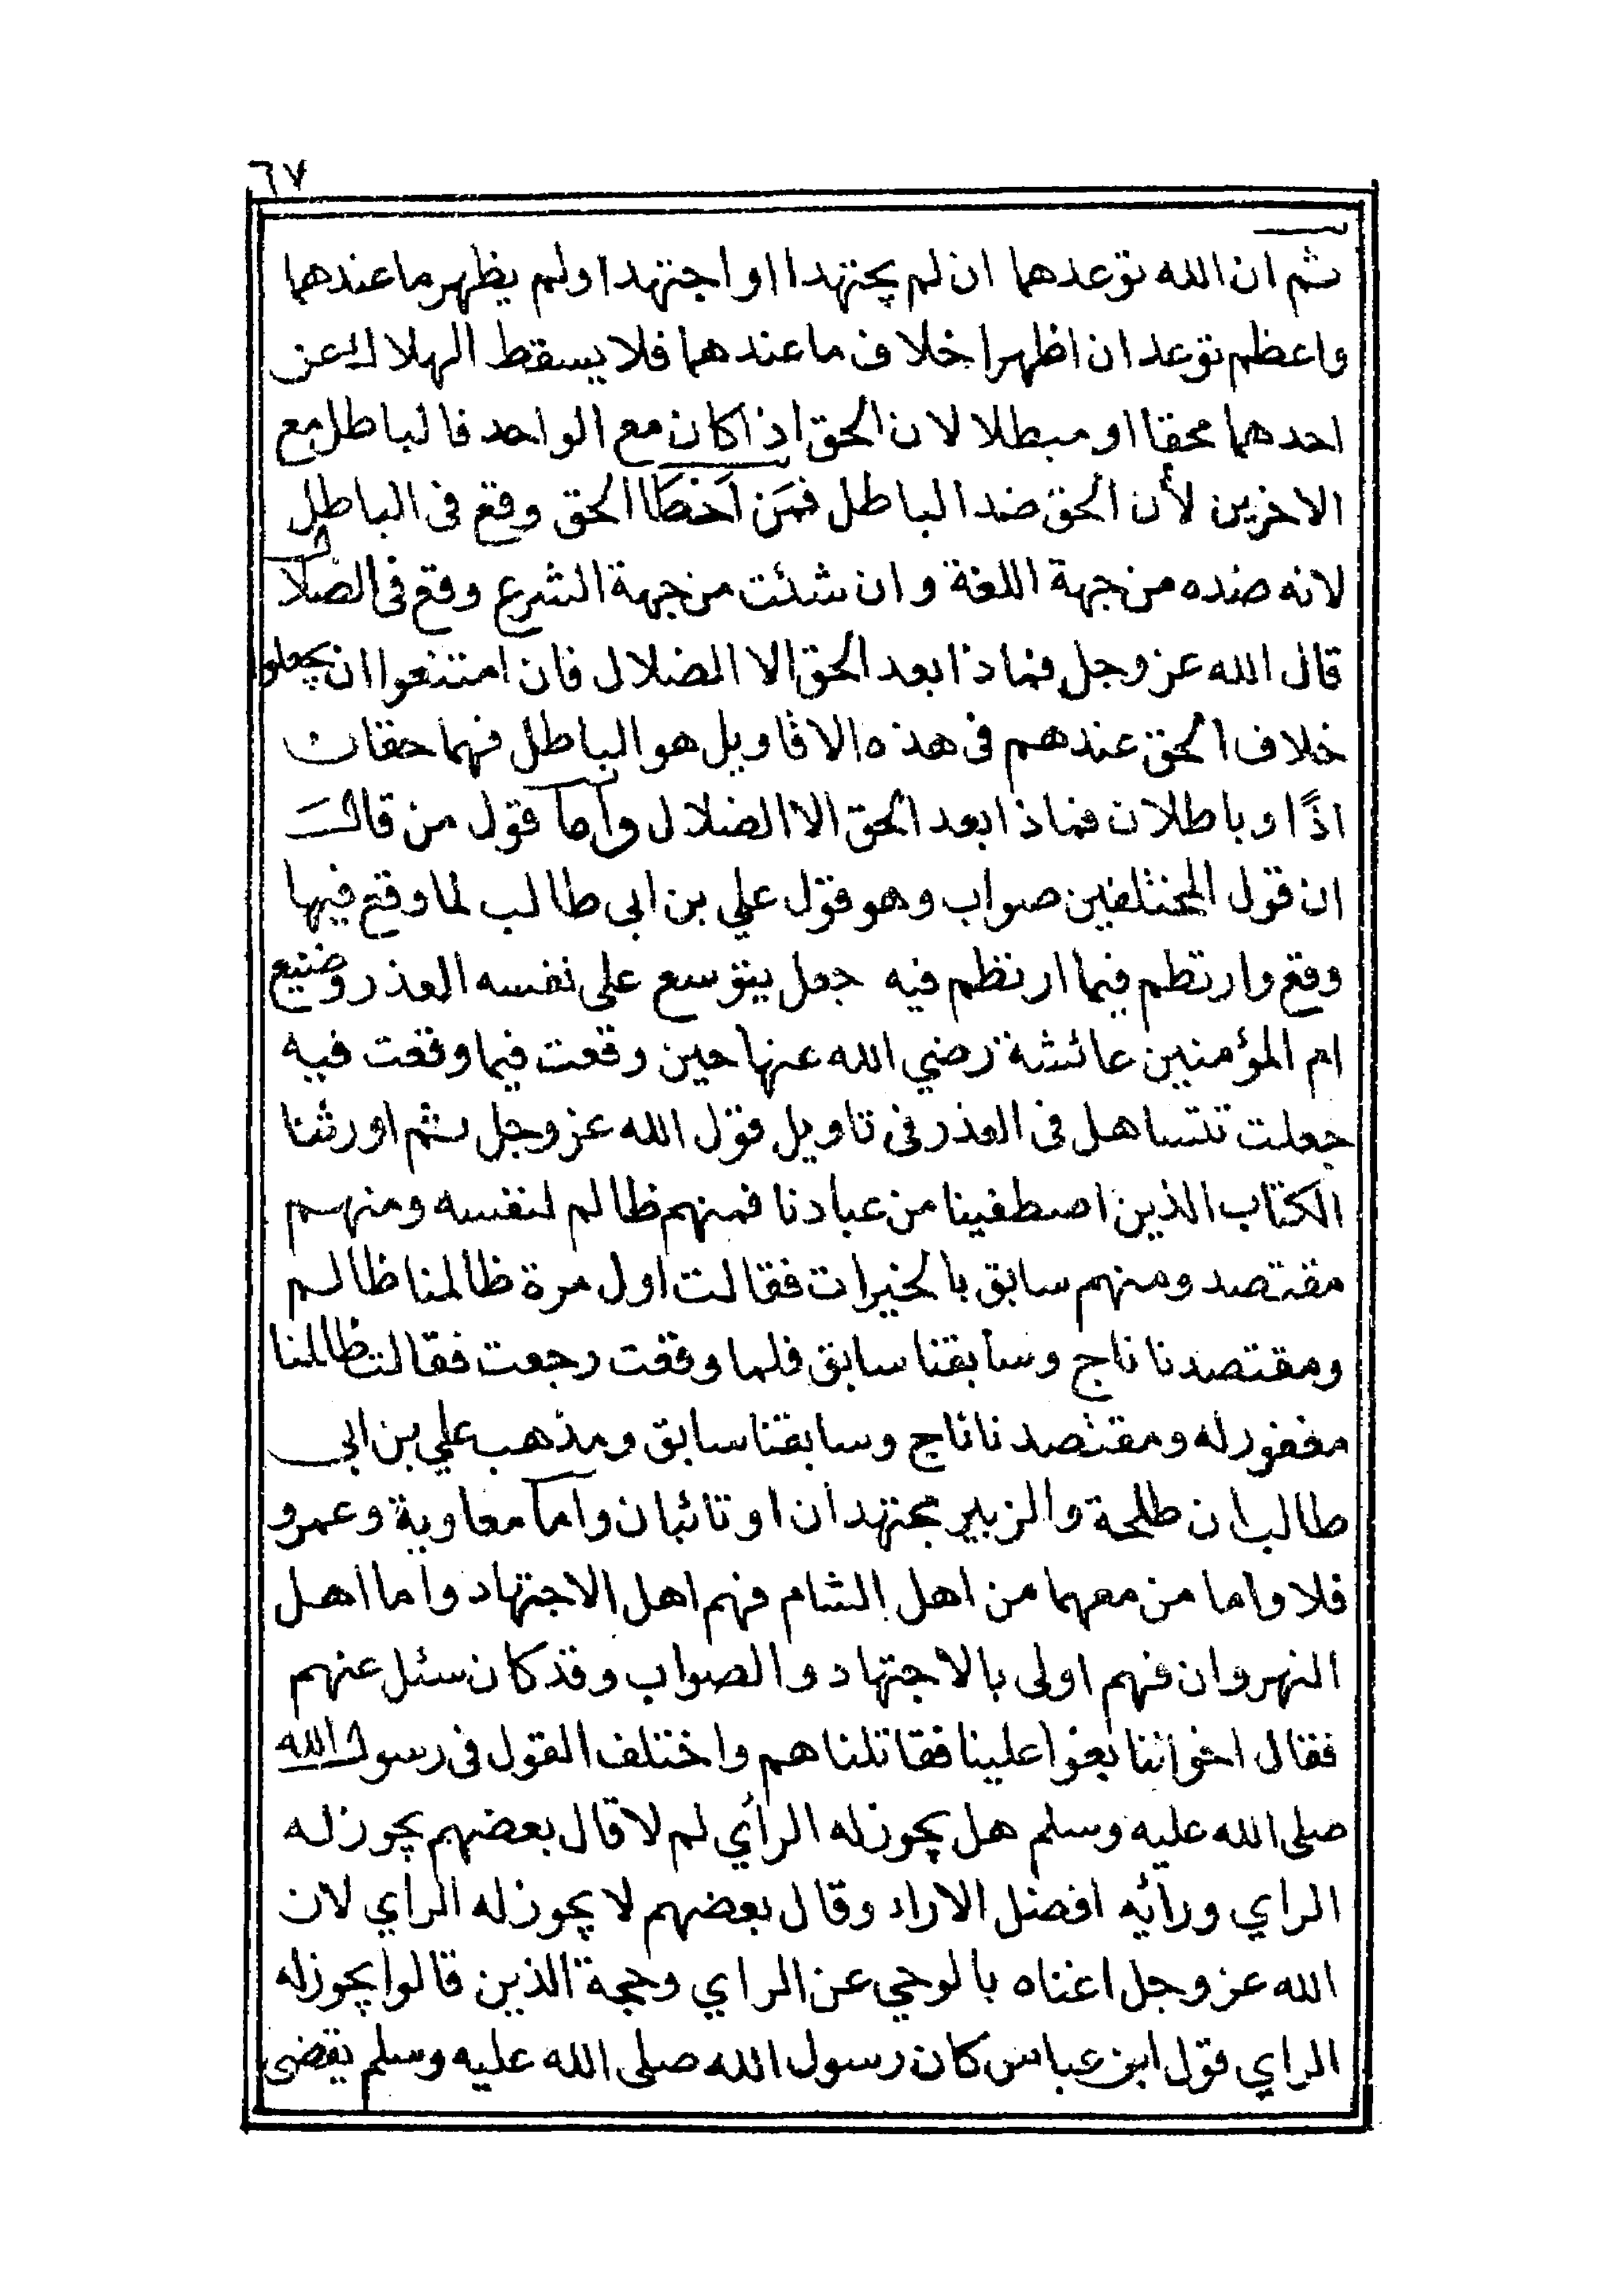 ٦٧
ثم ان الله توعدهما ان لم يجتهدا او اجتهدا ولم يظهر ما عندهما
واعظم توعد ان اظهرا خلاف ما عندهما فلا يسقط الهلاك عن
احدهما محقا او مبطلا لان الحق اذا كان مع الواحد فالباطل مع
الاخرين لأن الحق ضد الباطل فمَن اَخطَا الحق وقع فى الباطل
لانه ضده من جهة اللغة وان شئت من جهة الشرع وقع فى الضلال
قال الله عز وجل فماذا بعد الحق الا الضلال فان امتنعوا ان يجعلوا
خلاف الحق عندهم فى هذه الاقاويل هو الباطل فهما حقان
اذًا او باطلان فماذا بعد الحق الا الضلال وأما قول من قال
ان قول المختلفين صواب وهو قول علي بن ابى طالب لما وقع فيها
وقع وارتطم فيما ارتطم فيه جعل يتوسع على نفسه العذر وصنيع
ام المؤمنين عائشة رضي الله عنها حين وقعت فيما وقعت فيه
جعلت تتساهل فى العذر فى تاويل قول الله عز وجل ثم اورثنا
الكتاب الذين اصطفينا من عبادنا فمنهم ظالم لنفسه ومنهم
مقتصد ومنهم سابق بالخيرات فقالت اول مرة ظالمنا ظالم
ومقتصدنا ناج وسابقنا سابق فلما وقعت رجعت فقالت ظالمنا
مغفور له ومقتصدنا ناج وسابقنا سابق ومذهب علي بن ابي
طالب ان طلحة والزبير مجتهدان او تائبان وأما معاوية وعمرو
فلا واما من معهما من اهل الشام فهم اهل الاجتهاد واما اهل
النهروان فهم اولى بالاجتهاد والصواب وقد كان سئل عنهم
فقال اخواننا بغوا علينا فقاتلناهم واختلف القول فى رسول الله
صلى الله عليه وسلم هل يجوز له الرأي لم لا قال بعضهم يجوز له
الراي ورأيه افضل الاراء وقال بعضهم لا يجوز له الراي لان
الله عز وجل اغناه بالوحي عن الراي وحجة الذين قالوا يجوز له
الراي قول ابن عباس كان رسول الله صلى الله عليه وسلم يقضى